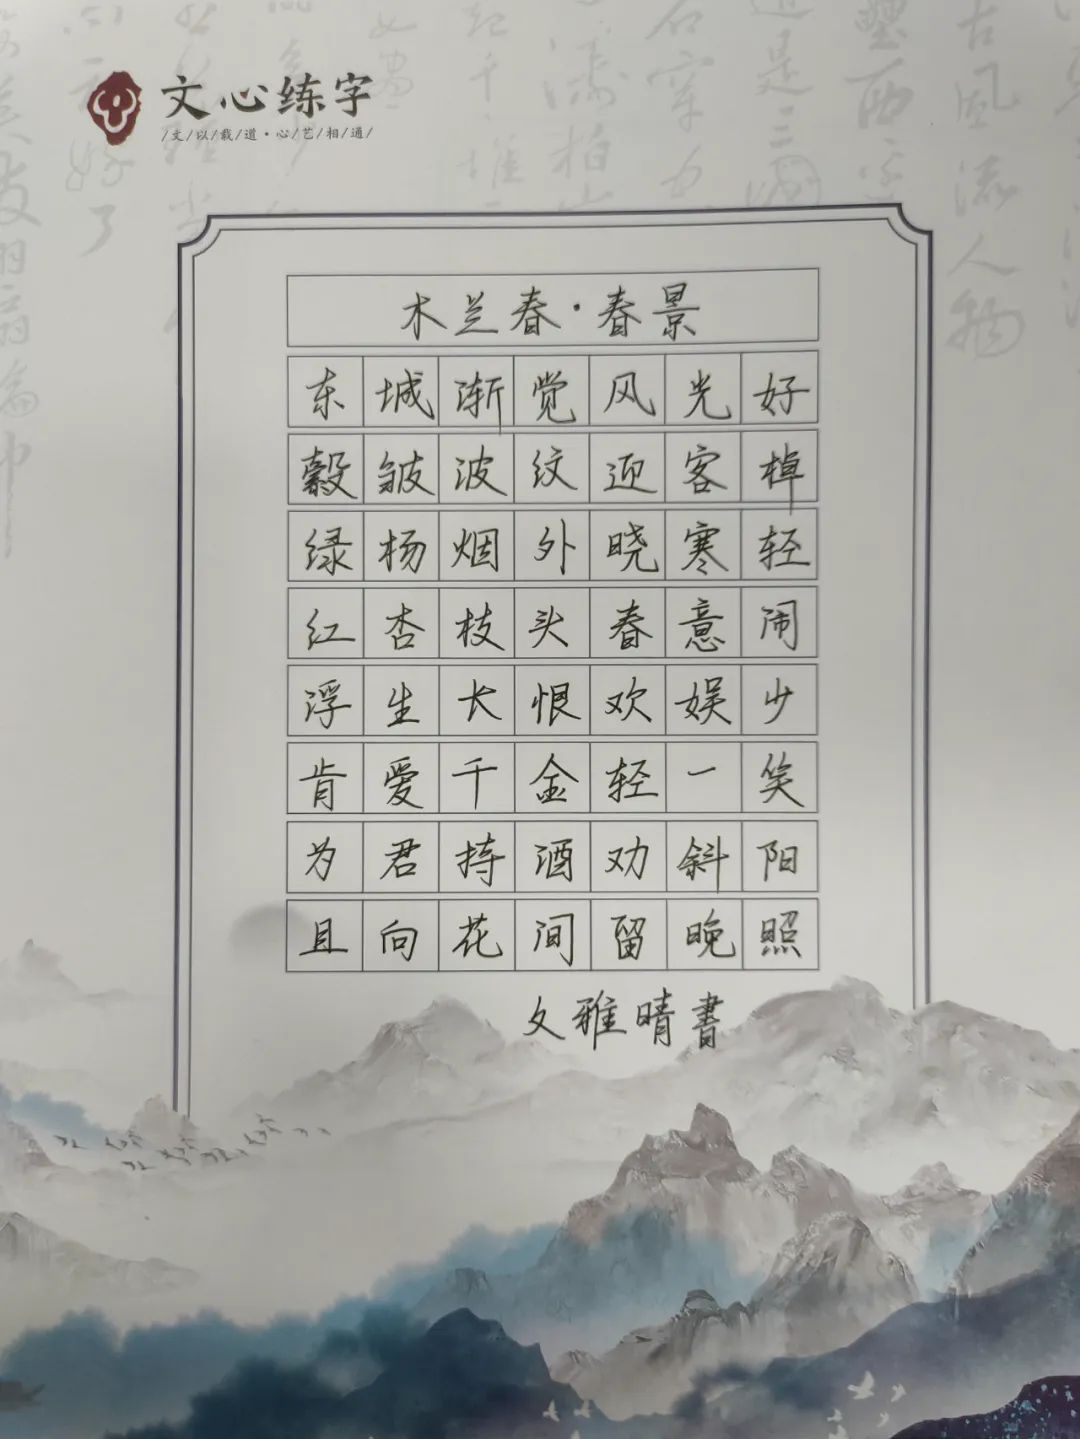 文心练字
/文/以/载/道·心/艺/相/通/
木兰春·春景
东城渐觉风光好
縠皱波纹迎客棹
绿杨烟外晓寒轻
红杏枝头春意闹
浮生长恨欢娱少
肯爱千金轻一笑
为君持酒劝斜阳
且向花间留晚照
文雅晴書